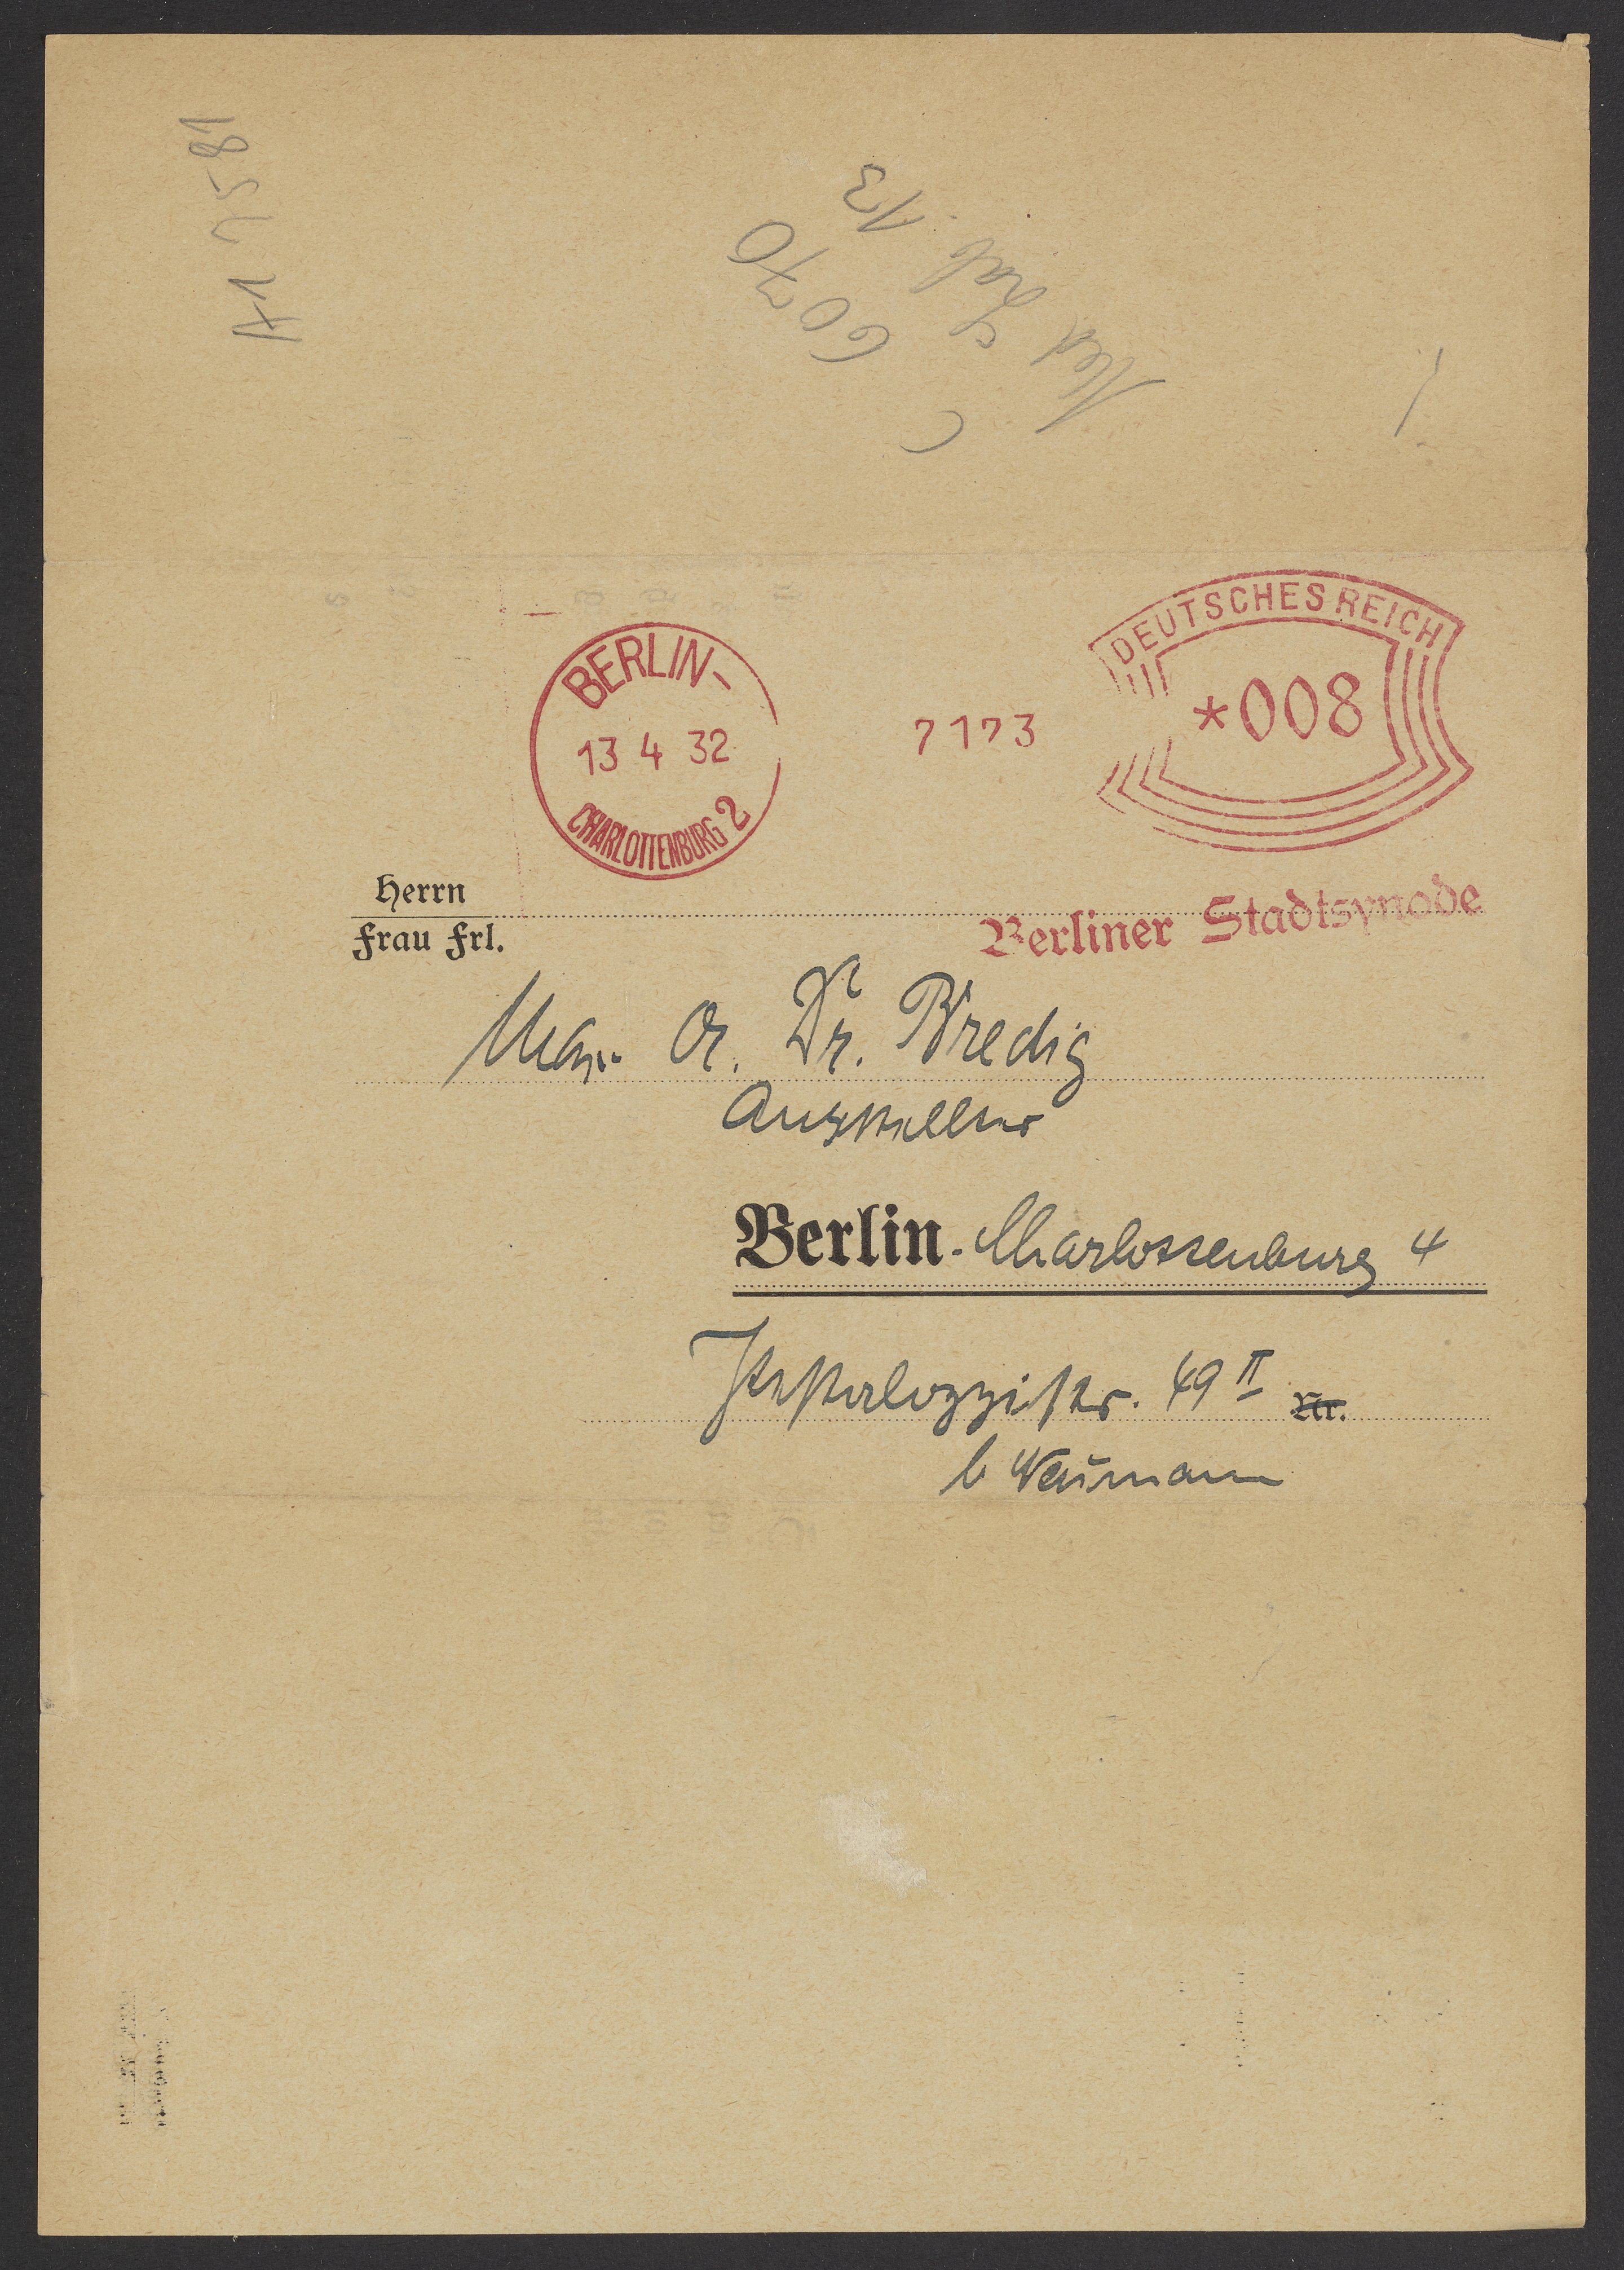 A1 1581
13
C 6070
BERLIN-
13 4 32
CHARLOTTENBURG 2
7173
DEUTSCHES REICH
*008
Herrn
Frau Frl.
Berliner Stadtsynode
Dr. Bredig
Berlin-Charlottenburg 4
Pestalozzistr. 49 II Nr.
b Naumann